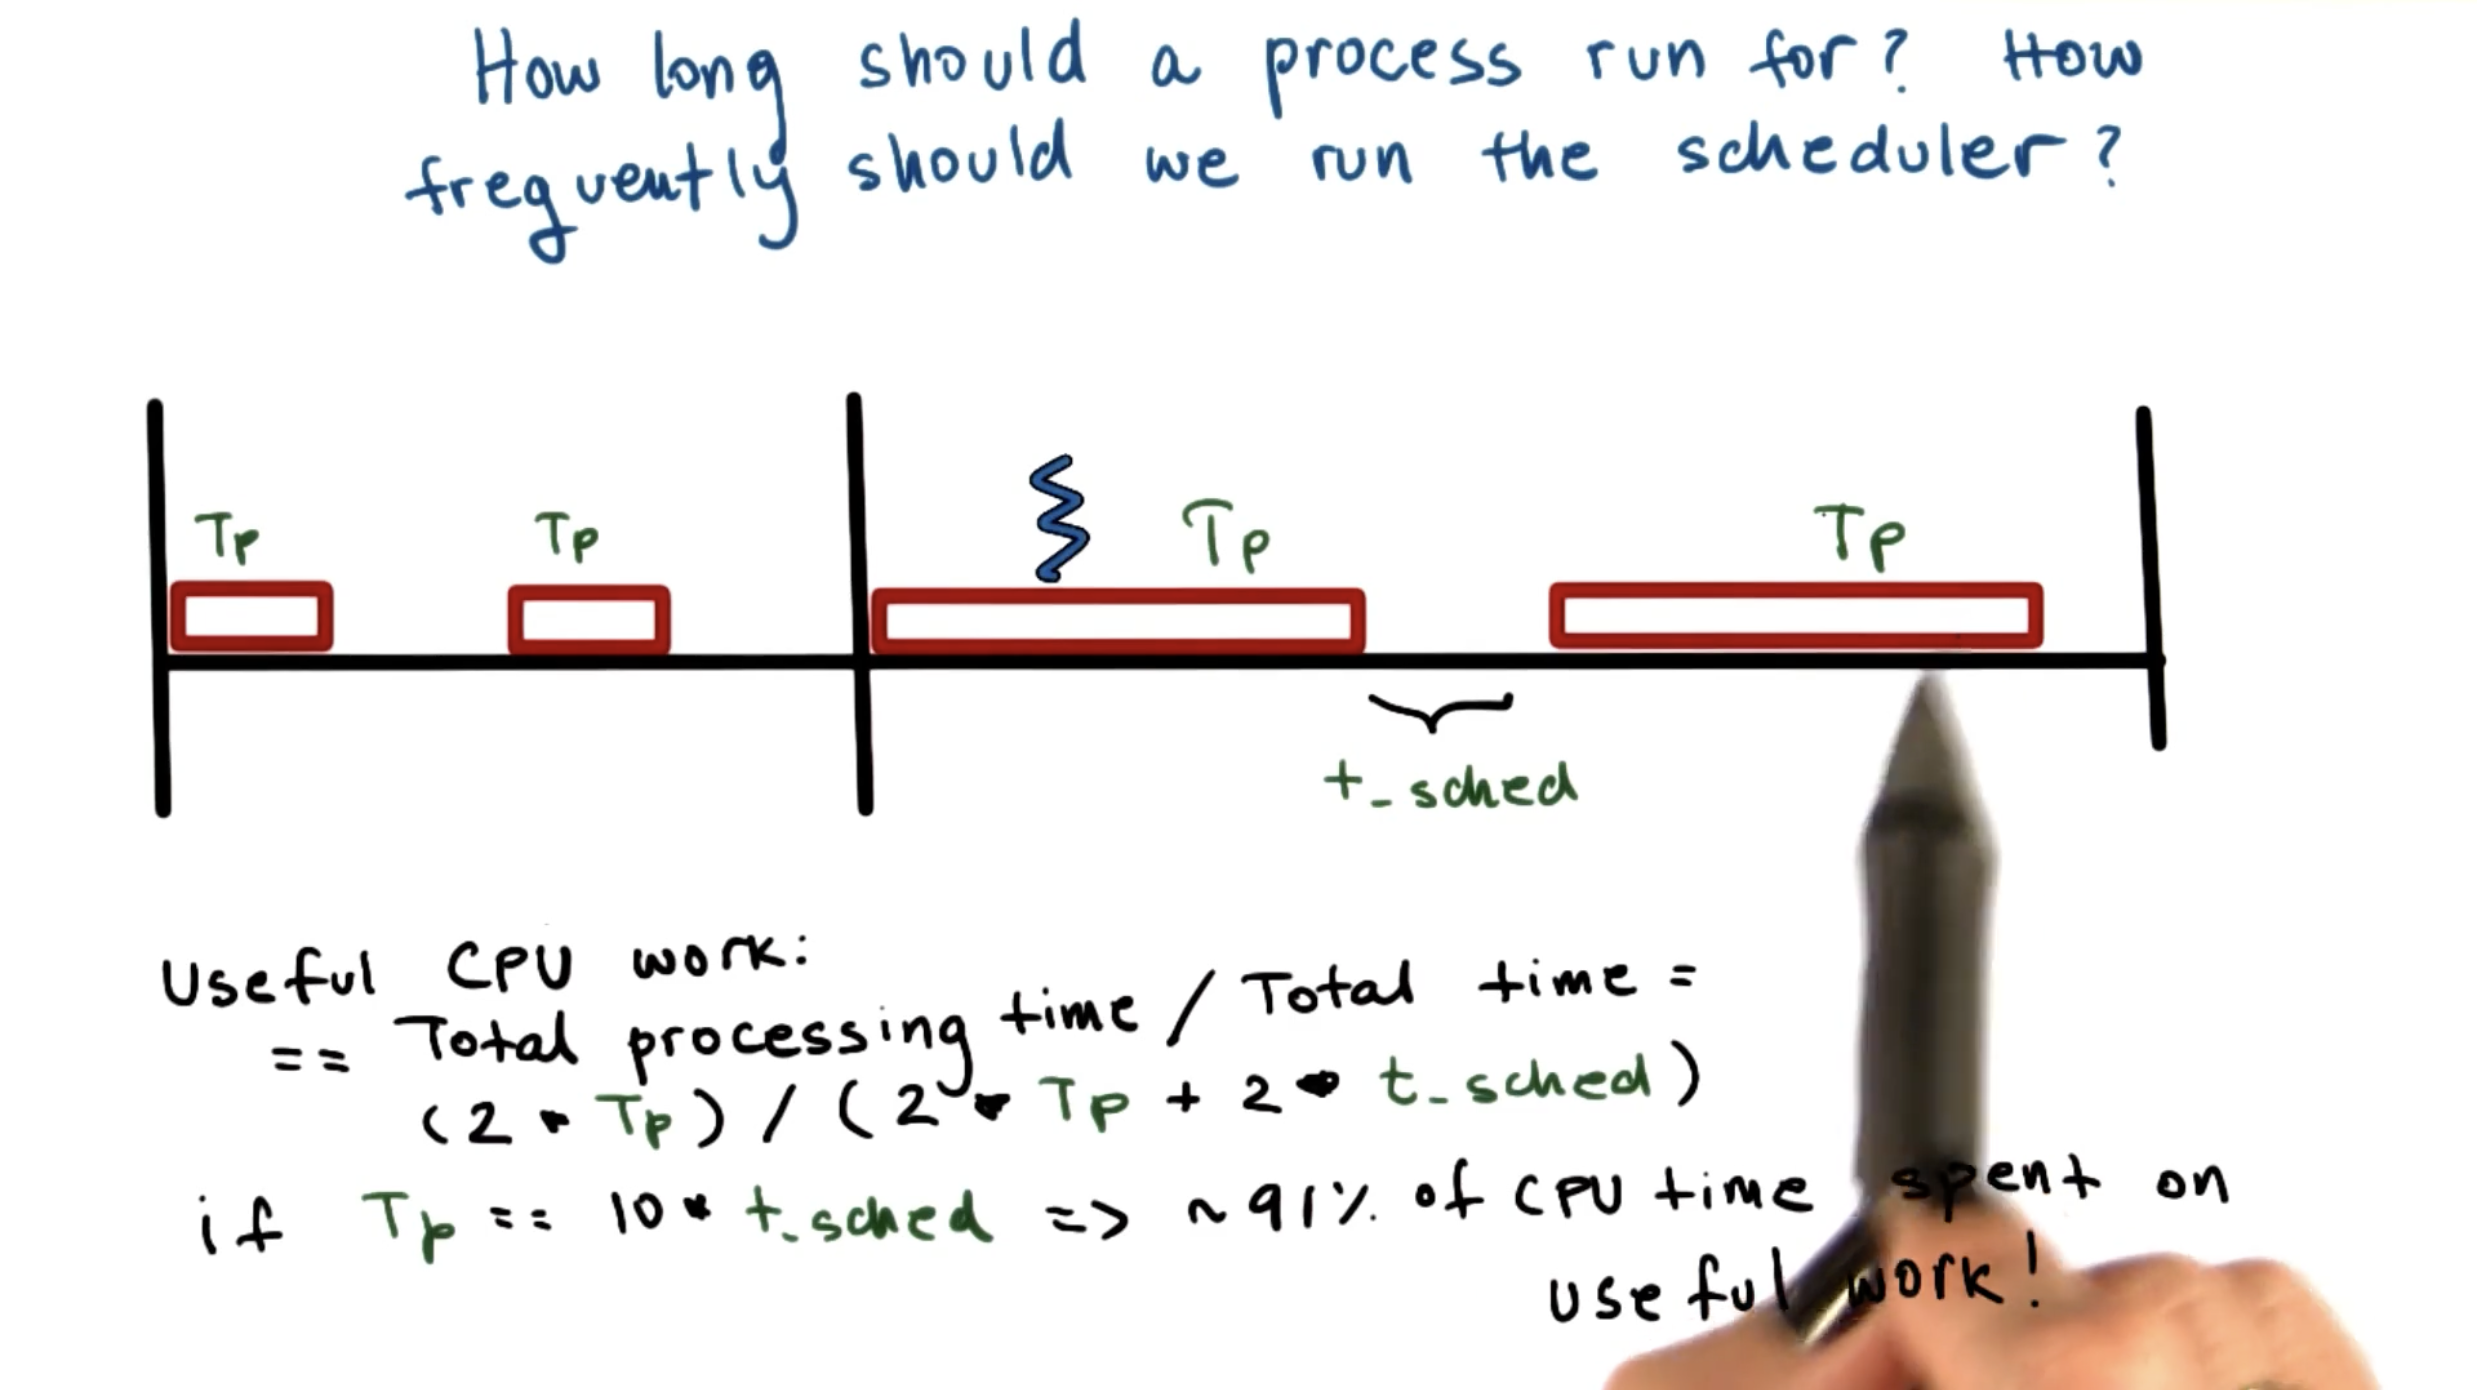 How long should a process run for? How
frequently should we run the scheduler?
Tp
Tp
Tp
Tp
t_sched
Useful CPU work:
== Total processing time / Total time =
(2 * Tp) / (2 * Tp + 2 * t_sched)
if Tp == 10 * t_sched => ~91% of CPU time spent on
useful work!